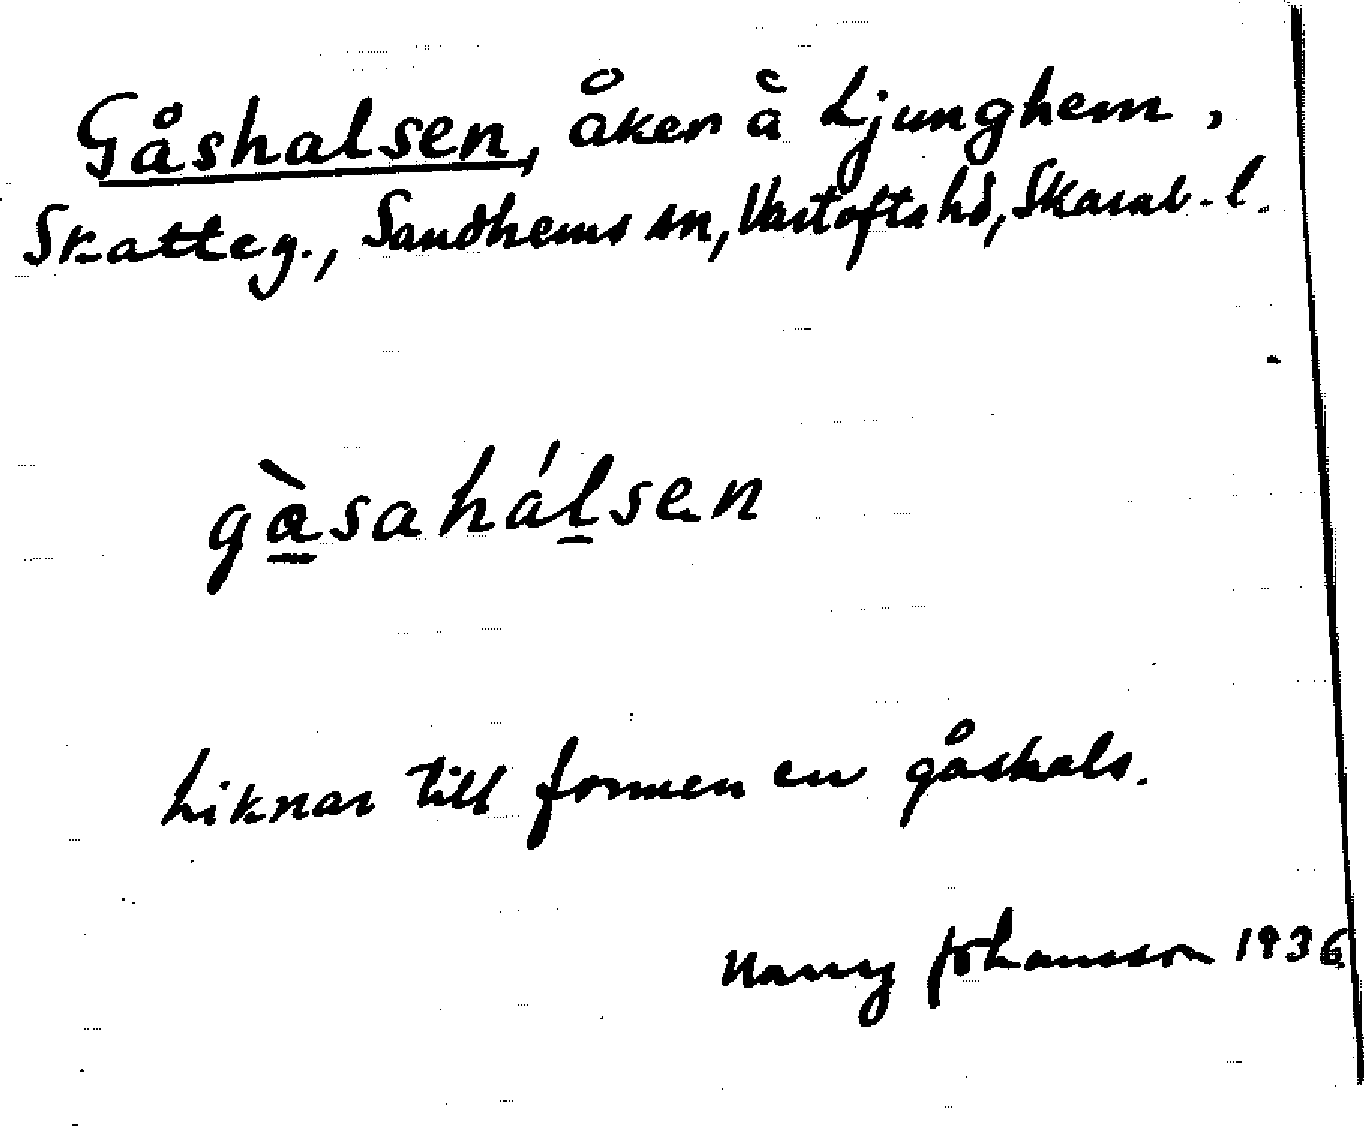 Gåshalsen, åker å Ljunghem,
Skatteg., Sandhems sn, Vartofta hd, Skarab. l.
gàsahálsen
Liknar till formen en gåshals.
Nanny Johansson 1936